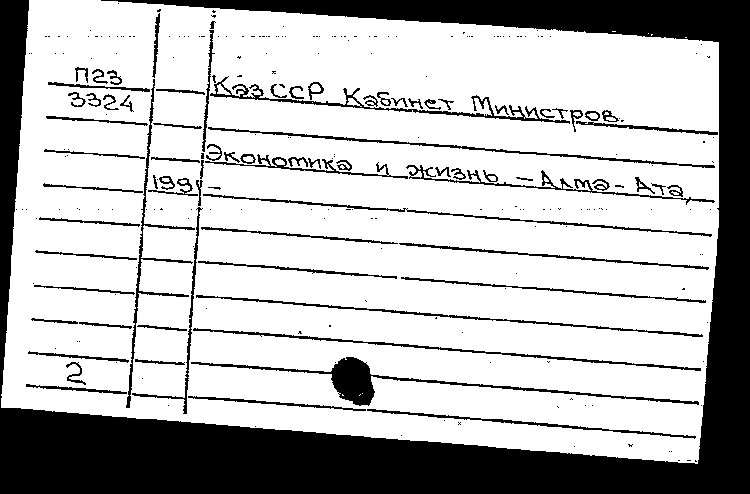 П23
3324
КазССР. Кабинет Министров.
Экономика и жизнь. – Алма-Ата,
1991 –
2